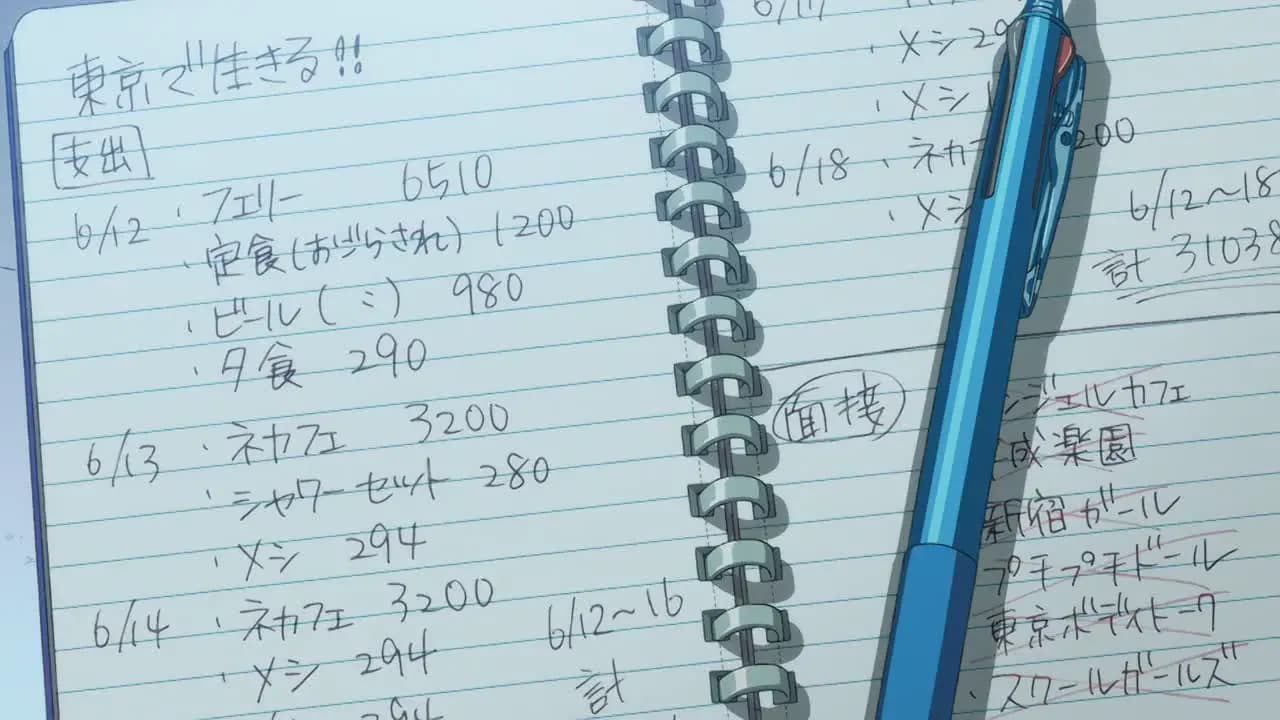 東京で生きる!!
支出
6/12 ・フェリー 6510
・定食(おごらされ) 1200
・ビール(〃) 980
・夕食 290
6/13 ・ネカフェ 3200
・シャワーセット 280
・メシ 294
6/14 ・ネカフェ 3200
・メシ 294
294
6/12〜16
計
6/17
・メシ 29
・メシ 1
6/18 ・ネカフ 200
・メシ
6/12〜18
計 31038
面接
ンジェルカフェ
成楽園
新宿ガール
プチプチドール
東京ボディトーク
・スクールガールズ